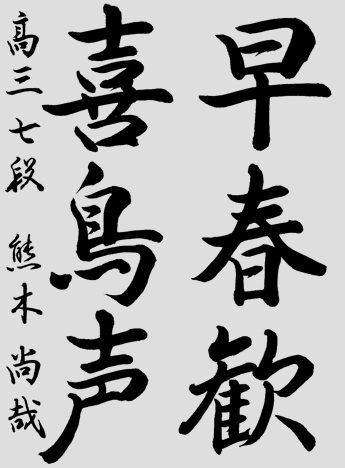 早春歓
喜鳥声
高三七段 熊木尚哉